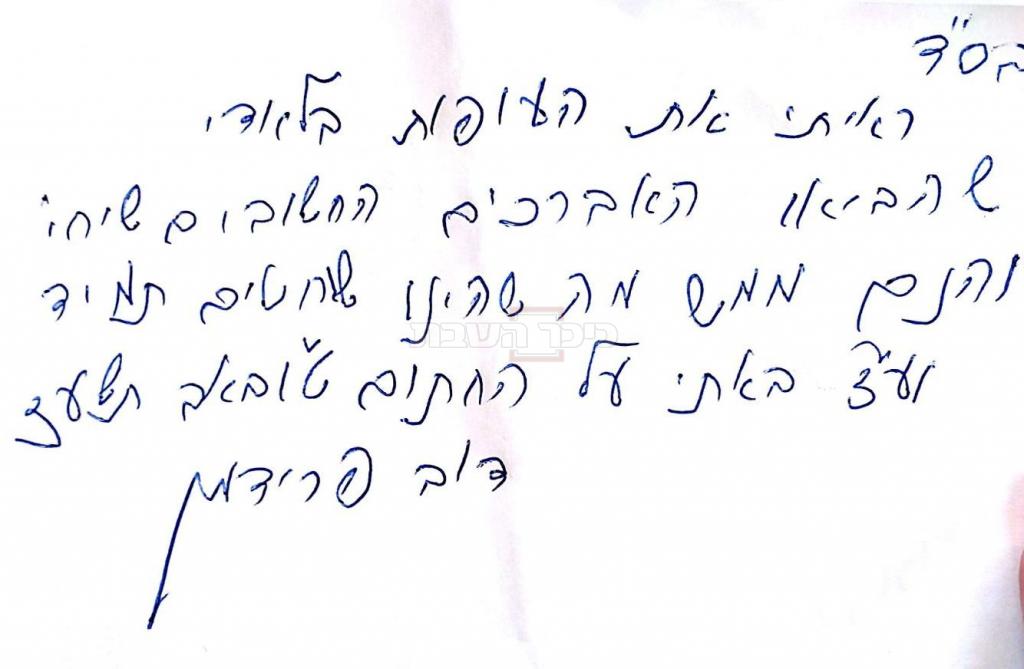 בס"ד
ראיתי את העופות
שהביאו האברכים החשובים שיחי'
והנם ממש מה שהינו שוחטים תמיד
ככר השבת
ועז"ב באתי על החתום ט"ו באב תשע"ז
דוב פרידמן